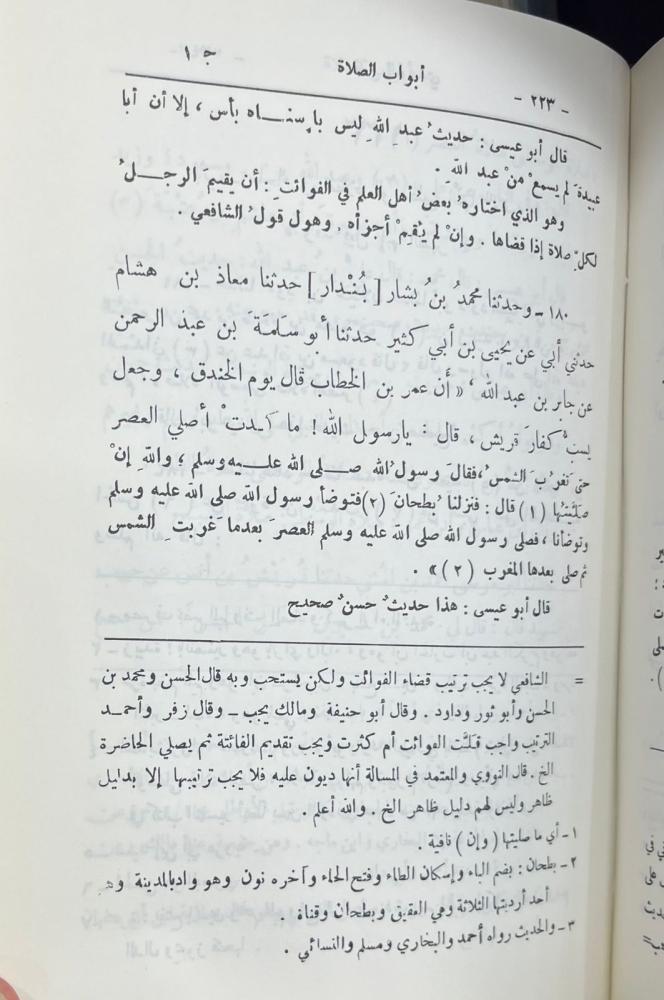 ج ١
أبواب الصلاة
- ٢٢٣ -
قال أبو عيسى : حديثُ عبدِ اللهِ ليس بإِسناه بأس ، إلا أن أبا
عبيدة لم يسمعْ منْ عبد الله .
وهو الذي اختارهُ بعضُ أهل العلم في الفوائتِ : أن يقيمَ الرجلُ
لكلِّ صلاة إذا قضاها . وإنْ لم يُقِمْ أجزأه . وهول قولُ الشافعي .
١٨٠ – وحدثنا محمدُ بنُ بشار [ بُنْدار ] حدثنا معاذ بن هشام
حدثني أبي عن يحيى بن أبي كثير حدثنا أبو سَلمةَ بن عبد الرحمن
عن جابر بن عبد الله ، « أن عمر بن الخطاب قال يوم الخندق ، وجعل
يسبُّ كفارَ قريش ، قال : يارسول الله ! ما كدتْ أصلي العصر
حتى تغرُبَ الشمسُ ، فقالَ رسولُ الله صلى الله عليه وسلم ، واللهِ إنْ
صلَّيتُها (١) قال : فنزلنا بُطحانَ (٢) فتوضأ رسول الله صلى الله عليه وسلم
وتوضأنا ، فصلى رسول الله صلى الله عليه وسلم العصرَ بعدما غربتِ الشمس
ثم صلى بعدها المغرب (٢) » .
قال أبو عيسى : هذا حديثُ حسنُ صحيح
= الشافعي لا يجب ترتيب قضاء الفوائت ولكن يستحب وبه قال الحسن ومحمد بن
الحسن وأبو ثور وداود . وقال أبو حنيفة ومالك يجب – وقال زفر وأحمد
الترتيب واجب قلَّت الفوائت أم كثرت ويجب تقديم الفائتة ثم يصلي الحاضرة
الخ . قال النووي والمعتمد في المسالة أنها ديون عليه فلا يجب ترتيبها إلا بدليل
ظاهر وليس لهم دليل ظاهر الخ . والله أعلم .
١ – أي ما صليتها ( وإن ) نافية .
٢ – بطحان : بضم الباء وإسكان الطاء وفتح الحاء وآخره نون وهو وادبالمدينة وهو
أحد أرديتها الثلاثة وهي العقيق وبطحان وقناة .
٣ – والحديث رواه أحمد والبخاري ومسلم والنسائي .